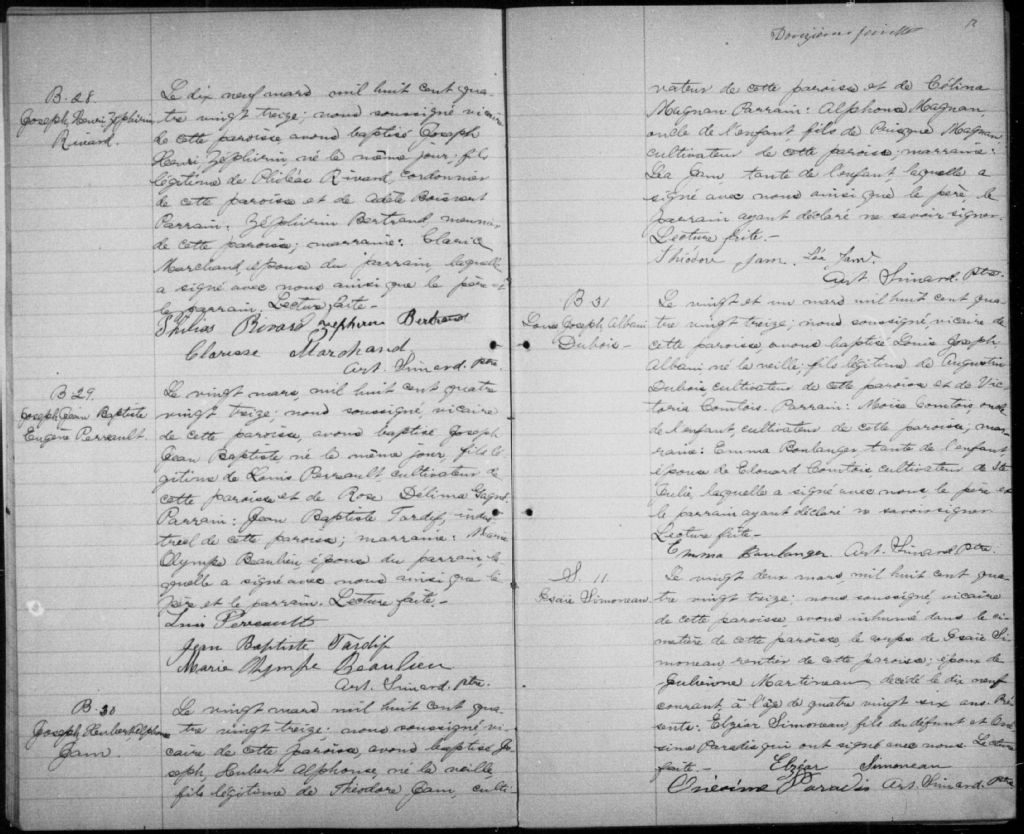 B. 28.
Joseph Henri Zéphirin
Rivard.
Le dix neuf mars mil huit cent qua-
tre vingt treize; nous soussigné vicaire
de cette paroisse, avons baptisé Joseph
Henri Zéphirin, né le même jour, fils
légitime de Philéas Rivard, cordonnier
de cette paroisse et de Adèle Boisvert
Parrain: Zéphirin Bertrand
de cette paroisse; marraine: Clarice
Marchand, épouse du parrain, laquelle
a signé avec nous ainsi que le père et
le parrain. Lecture faite -
Philias Rivard Zephirin Bertrand
Clarisse Marchand
Art. Simard. ptre.
B 29.
Joseph Jean Baptiste
Eugène Perrault.
Le vingt mars, mil huit cent quatre
vingt treize; nous soussigné, vicaire
de cette paroisse, avons baptisé Joseph
Jean Baptiste né le même jour, fils lé-
gitime de Louis Perrault, cultivateur de
cette paroisse et de Rose Délima Gagné.
Parrain: Jean Baptiste Tardif, indus-
triel de cette paroisse; marraine: Marie
Olympe Beaulieu épouse du parrain, la-
quelle a signé avec nous ainsi que le
père et le parrain. Lecture faite. -
Luis Perreault
Jean Baptiste Tardif
Marie Olympe Beaulieu
Art. Simard. ptre.
B. 30
Joseph Hubert Alphonse
Jam.
Le vingt mars mil huit cent qua-
tre vingt treize: nous soussigné vi-
caire de cette paroisse, avons baptisé Jo-
seph, Hubert Alphonse, né la veille,
fils légitime de Théodore Jam, culti-
Douzième feuillet
12
vateur de cette paroisse et de Célina
Magnan Parrain: Alphonse Magnan,
oncle de l'enfant fils de Magnan
cultivateur de cette paroisse; marraine:
Léa Jam tante de l'enfant laquelle a
signé avec nous ainsi que le père le
parrain ayant déclaré ne savoir signer.
Lecture faite. -
Théodore Jam. Léa Jam.
Art Simard. Ptre.
B 31
Louis Joseph Albani
Dubois -
Le vingt et un mars mil huit cent qua-
tre vingt treize; nous soussigné, vicaire de
cette paroisse, avons baptisé Louis Joseph
Albani né la veille; fils légitime de Augustin
Dubois cultivateur de cette paroisse et de Vic-
toria Comtois. Parrain: Moïse Comtois oncle
de l'enfant, cultivateur de cette paroisse; mar-
raine: Emma Boulanger tante de l'enfant
épouse de Edouard Comtois cultivateur de Ste
Julie, laquelle a signé avec nous le père et
le parrain ayant déclaré ne savoir signer
Lecture faite -
Emma Boulanger Art. Simard Ptre.
S. 11
Esaïe Simoneau.
Le vingt deux mars, mil huit cent qua-
tre vingt treize; nous soussigné, vicaire
de cette paroisse, avons inhumé dans le ci-
metière de cette paroisse, le corps de Esaïe Si-
moneau rentier de cette paroisse; époux de
Julienne Martineau décédé le dix neuf
courant, à l'âge de quatre vingt six ans. Pré-
sents: Elzéar Simoneau, fils du défunt et
Paradis qui ont signé avec nous Lecture
faite. - Elzéar Simoneau
Onésime Paradis Art. Simard. Ptre